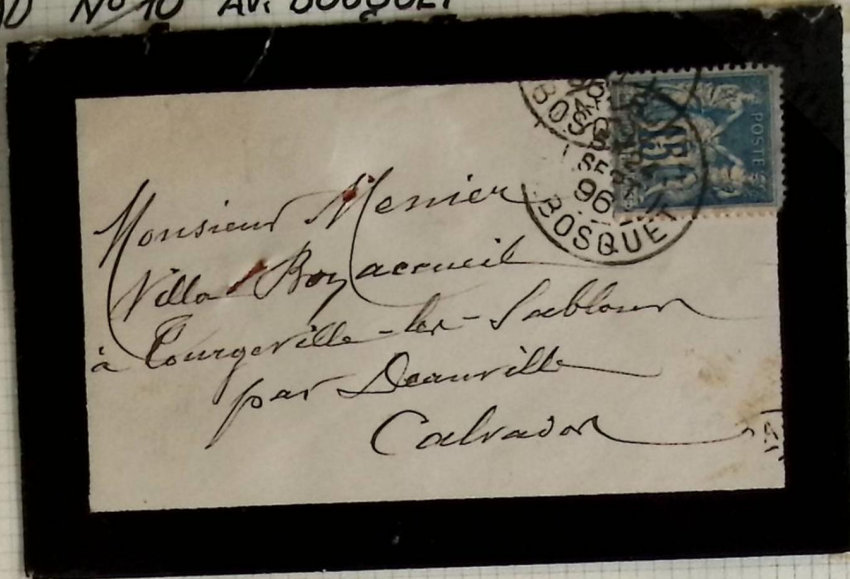 No 10 AV. BOUQUET
POSTE
15
BOSQUET
SE
96
BOSQUET
Monsieur Menier
Villa Bon accueil
à Tourgeville-les-Sablons
par Deauville
Calvados